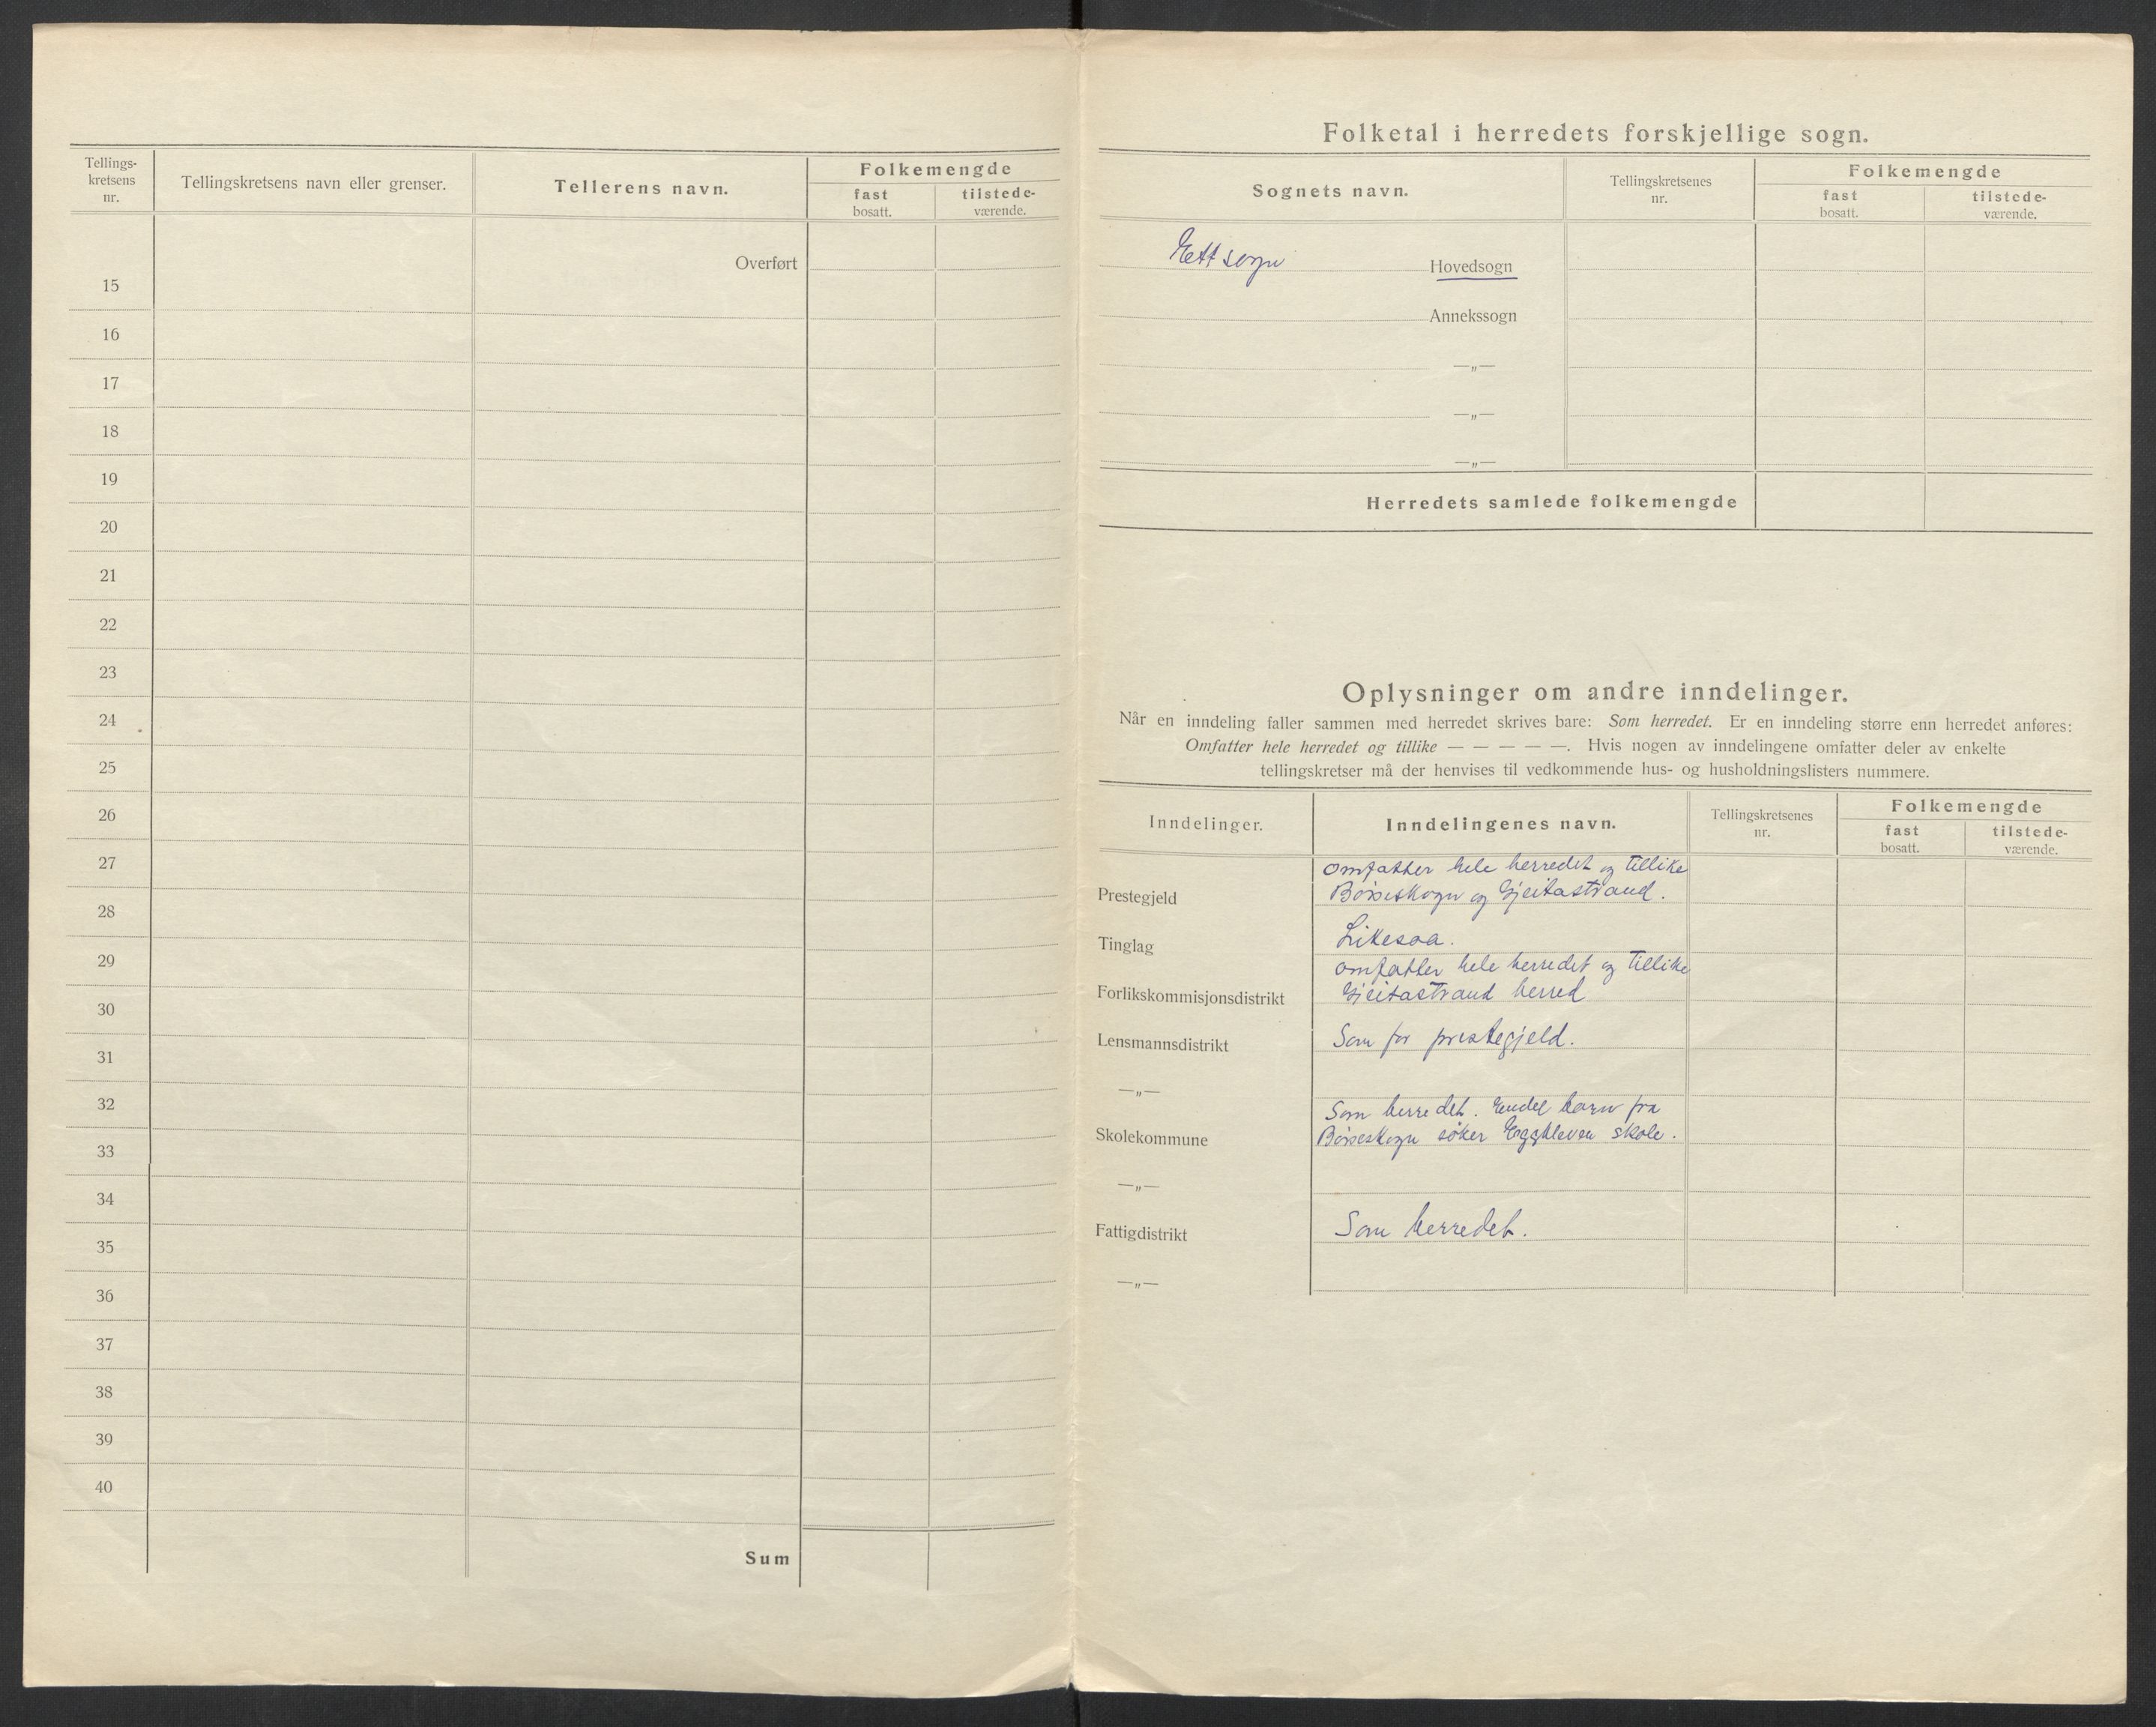 Tellings-
kretsens
nr.
Tellingskretsens navn eller grenser.
Tellerens navn.
Folkemengde
fast
bosatt.
tilstede-
værende.
Overført
15
16
17
18
19
20
21
22
23
24
25
26
27
28
29
30
31
32
33
34
35
36
37
38
39
40
Sum
Folketal i herredets forskjellige sogn.
Sognets navn.
Tellingskretsenes
nr.
Folkemengde
fast
bosatt.
tilstede-
værende.
Ett sogn Hovedsogn
Annekssogn
—„—
—„—
—„—
Herredets samlede folkemengde
Oplysninger om andre inndelinger.
Når en inndeling faller sammen med herredet skrives bare: Som herredet. Er en inndeling større enn herredet anføres:
Omfatter hele herredet og tillike — — — — —. Hvis nogen av inndelingene omfatter deler av enkelte
tellingskretser må der henvises til vedkommende hus- og husholdningslisters nummere.
Inndelinger.
Inndelingenes navn.
Tellingskretsenes
nr.
Folkemengde
fast
bosatt.
tilstede-
værende.
omfatter hele herredet og tillike
Prestegjeld Börseskogn og Gjeitastrand.
Tinglag Likesaa.
omfatter hele herredet og tillike
Forlikskommisjonsdistrikt Gjeitastrand herred
Lensmannsdistrikt Som for prestegjeld.
—„—
Som herredet. Endel barn fra
Skolekommune Börseskogn söker Eggkleven skole.
—„—
Fattigdistrikt Som herredet.
—„—